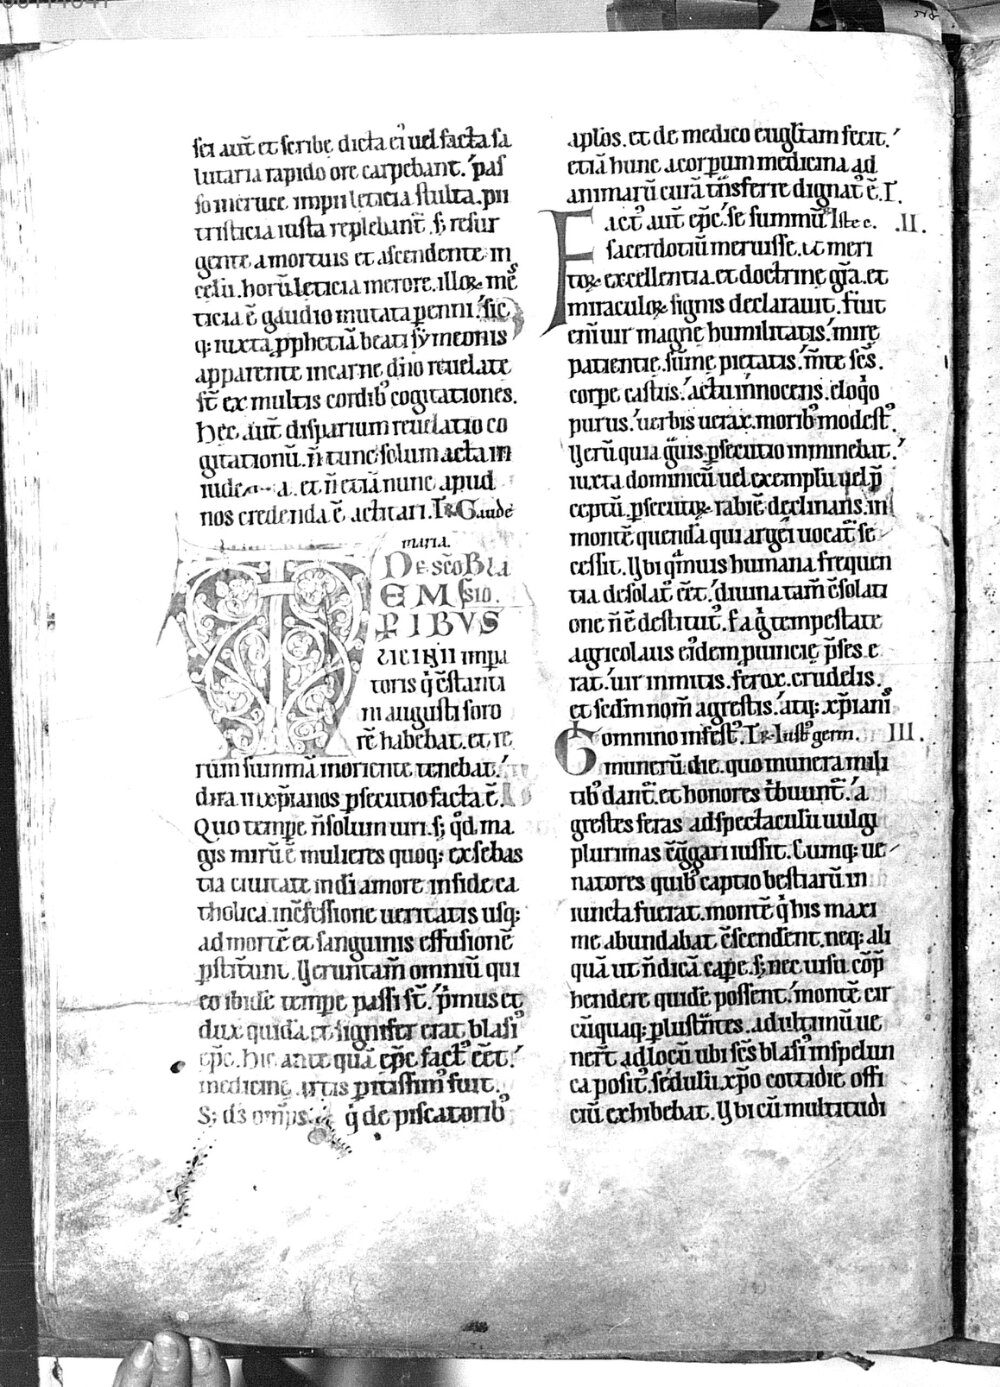 sei aut̄ et scribe dicta ei᾽ uel facta sa
lutaria rapido ore carpebant. pas
so in cruce. impii leticia stulta. pii
tristicia iusta replebant̄. s; resur
gente a mortuis et ascendente in
celū. horū leticia merore. illoꝝ mes
ticia ē gaudio mutata perenni. sic
q; iuxta ꝓphetiā beati symeonis
apparente in carne dn̄o reuelate
st̄ ex multis cordib᾽ cogitationes.
Hec. aut̄ disparium reuelatio co
gitationū. n̄ tunc solum acta in
iudea. et n̄ etiā nunc apud
nos credenda ē actitari. R̄ Gaude
maria.
De sc̄o Bla
sio.
TEMPORIBUS
licinii impa
toris q̄ c̄stanti
ni augusti soro
rē habebat. et re
rum summā in oriente tenebat.
dira in xp̄ianos ꝑsecutio facta ē.
Quo tempe n̄ solum uiri. s; qd̄ ma
gis mirū ē mulieres quoq; ex sebas
tia ciuitate in dī amore in fide ca
tholica. in c̄fessione ueritatis usq;
ad mortē et sanguinis effusionē
ꝑstiterunt. Veruntam̄ omniū qui
eo ibidē tempe passi st̄. p̄mus et
dux quidā et signifer erat blasi᾽
ep̄c. Hic ante quā ep̄c fact᾽ eēt.
medicine artis peritissim᾽ fuit.
S; ds̄ om̄ps. q̄ de piscatorib᾽
apl̄os. et de medico eugl̄istam fecit.
etiā hunc a corporum medicina ad
animarū curā tn̄sferre dignat᾽ ē. R̄.
Fact᾽ aut̄ ep̄c. se summū Iste e. .II.
sacerdotiū meruisse. ut meri
toꝝ excellentia. et doctrine gr̄a. et
miraculoꝝ signis declarauit. fuit
enī uir magne humilitatis. mire
patientie. sūme pietatis. mente sc̄s.
corpe castus. actu innocens. eloqio
purus. uerbis uerax. morib᾽ modest᾽.
Verū quia grauis ꝑsecutio imminebat.
iuxta dominicū uel exemplū uel p̄
ceptū. ꝑsecutoꝝ rabiē declinans. in
montē quendā qui argei uocat᾽ se
cessit. Vbi quamuis humana frequen
tia desolat᾽ eēt. diuina tam̄ c̄solati
one n̄ ē destitut᾽. Ea q̄ tempestate
agricolaus ei᾽dem puincie p̄ses e
rat. uir inmitis. ferox. crudelis.
et sedm̄ nom̄ agrestis. atq; xp̄iani᾽
omnino infest᾽. R̄ Iust᾽ germ. III.
Ergo
munerū die. quo munera mili
tib᾽ dant᾽. et honores tribuunt᾽. a
grestes feras ad spectaculū uulgi
plurimas c̄gregari iussit. Cumq; ue
natores quib᾽ captio bestiarū in
iuncta fuerat. montē q̄ his maxi
me abundabat c̄scendent. neq; ali
quā ut n̄ dicā cape. s; nec uisu cōp̄
hendere quidē possent. montē cir
cūquaq; plustrantes. ad ultimū ue
nert̄ ad locū ubi sc̄s blasi᾽ in spelun
ca posit᾽. sedulū xp̄o cottidie offi
ciū exhibebat. Vbi cū multitudi